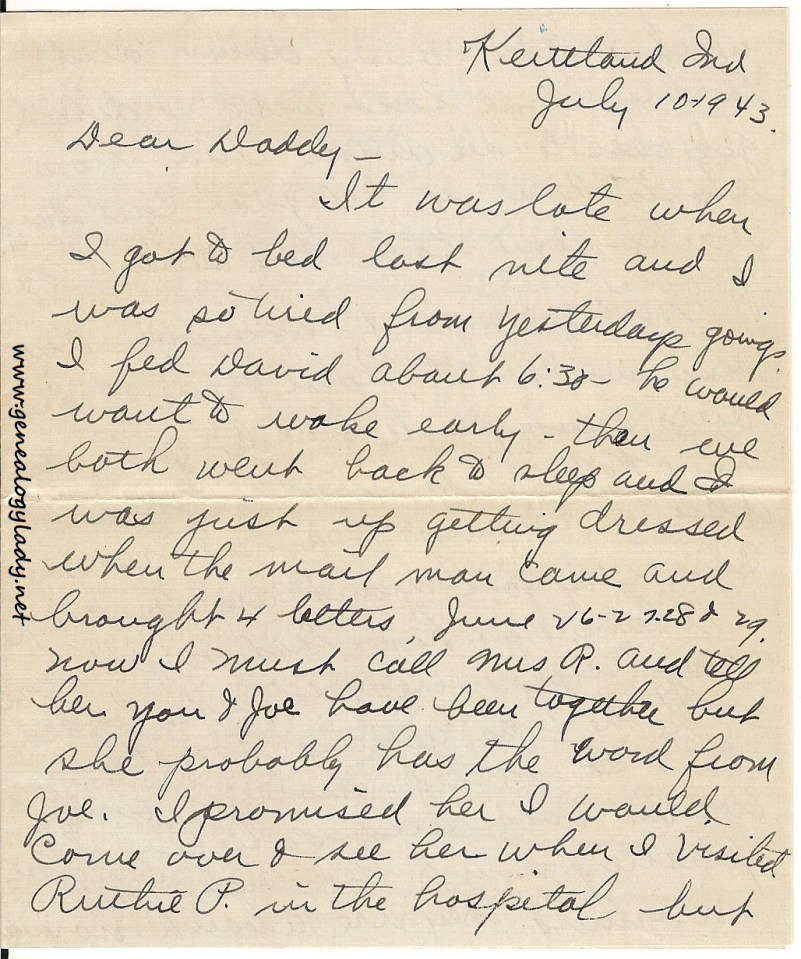 Kentland Ind
July 10-1943.
Dear Daddy-
It was late when
I got to bed last nite and I
was so tired from yesterdays goings.
I fed David about 6:30- he would
want to wake early - then we
both went back to sleep and I
was just up getting dressed
when the mail man came and
brought 4 letters, June 26-27-28 & 29.
Now I must call Mrs R. and tell
her you & Joe have been together but
she probably has the word from
Joe. I promised her I would
come over & see her when I visited
Ruthie P. in the hospital but
www.genealogylady.net